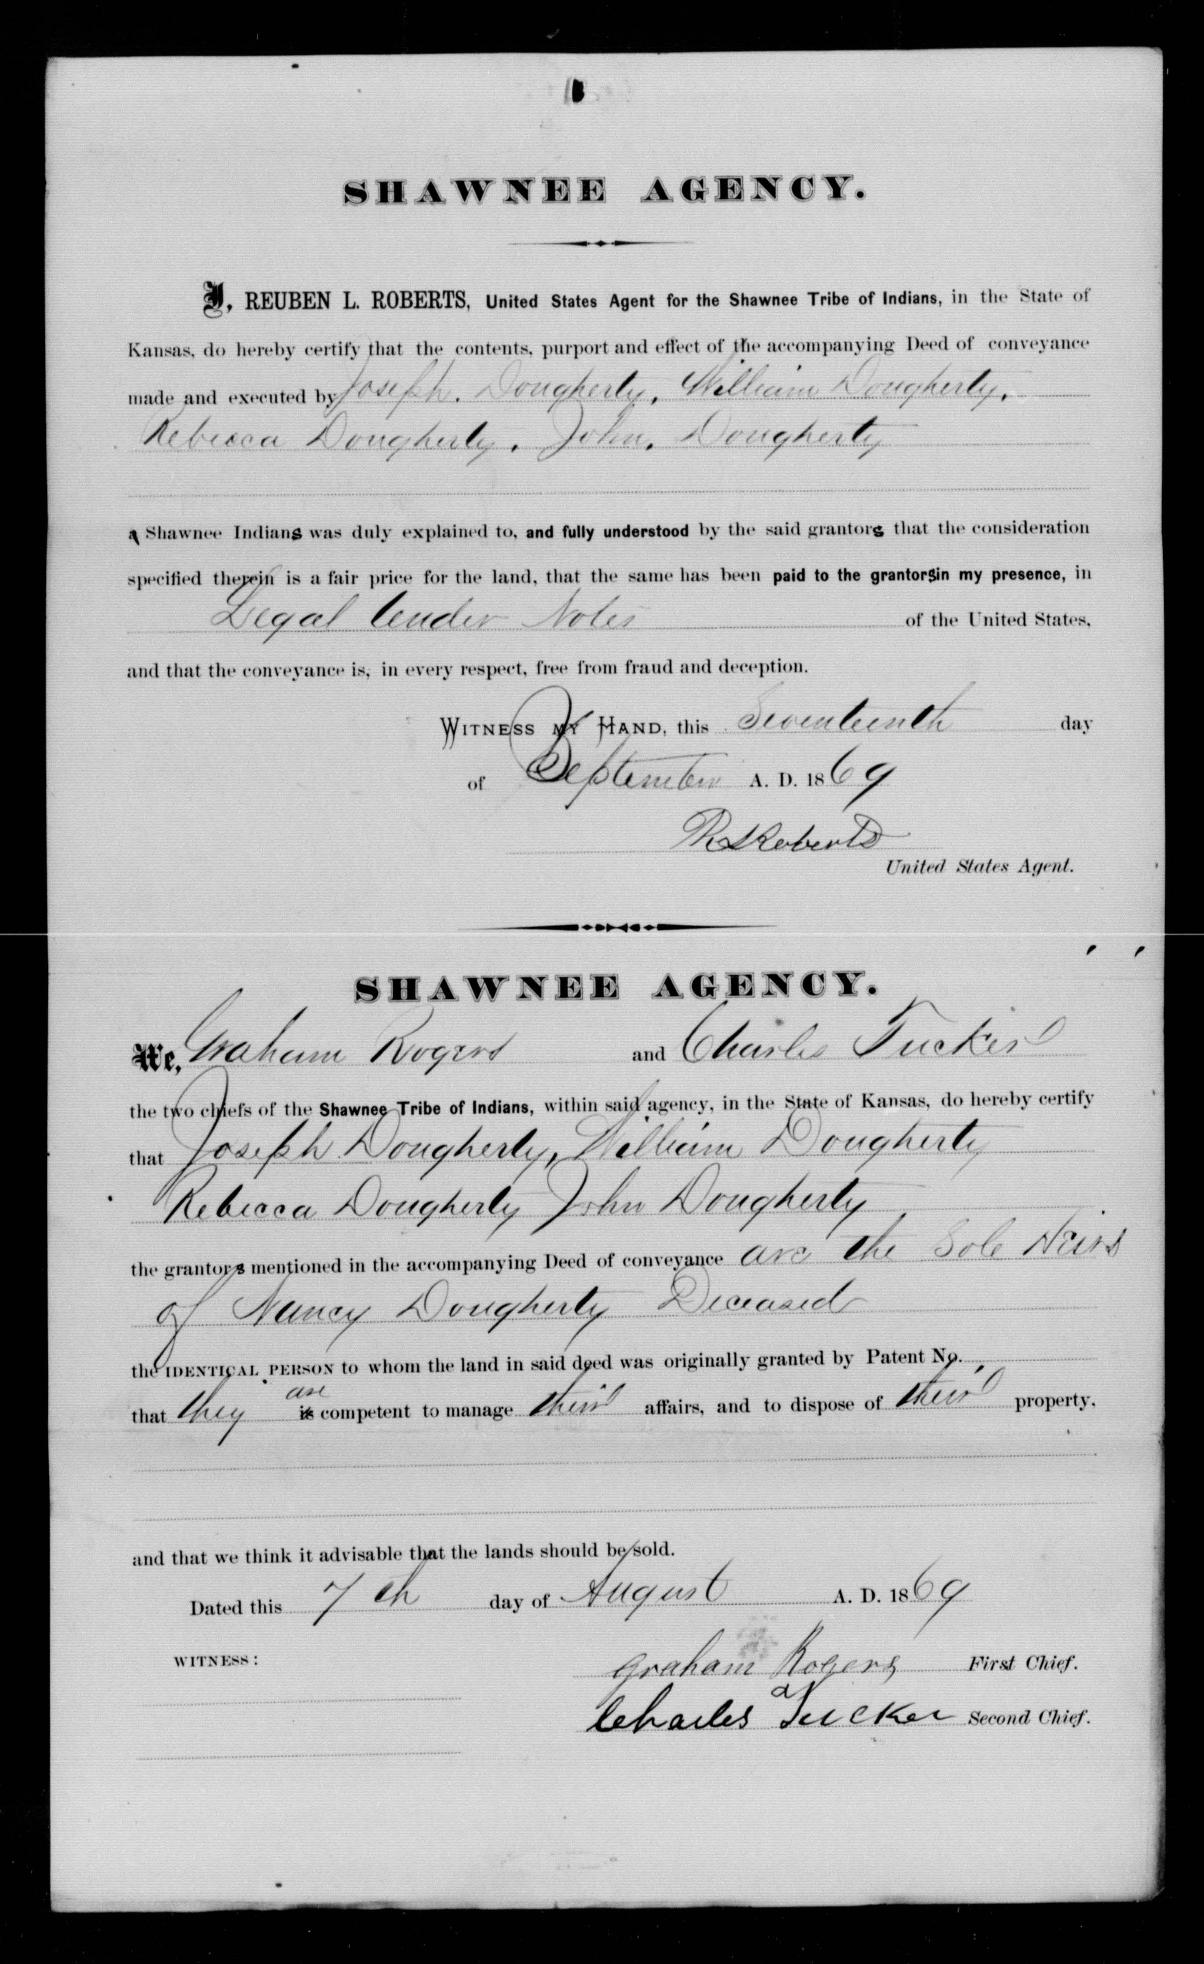 SHAWNEE AGENCY.
I, REUBEN L. ROBERTS, United States Agent for the Shawnee Tribe of Indians, in the State of
Kansas, do hereby certify that the contents, purport and effect of the accompanying Deed of conveyance
made and executed by Joseph. Dougherty, William Dougherty,
Rebecca Dougherty, John, Dougherty
a Shawnee Indians was duly explained to, and fully understood by the said grantors that the consideration
specified therein is a fair price for the land, that the same has been paid to the grantors in my presence, in
Legal tender Notes of the United States,
and that the conveyance is, in every respect, free from fraud and deception.
WITNESS MY HAND, this Seventeenth day
of September A. D. 1869
R L Roberts
United States Agent.
SHAWNEE AGENCY.
We, Graham Rogers and Charles Tucker
the two chiefs of the Shawnee Tribe of Indians, within said agency, in the State of Kansas, do hereby certify
that Joseph Dougherty, William Dougherty
Rebecca Dougherty John Dougherty
the grantors mentioned in the accompanying Deed of conveyance are the Sole Heirs
of Nancy Dougherty Deceased
the IDENTICAL PERSON to whom the land in said deed was originally granted by Patent No.
that they is are competent to manage their affairs, and to dispose of their property,
and that we think it advisable that the lands should be sold.
Dated this 7th day of August A. D. 1869
WITNESS:
Graham Rogers First Chief.
Charles Tucker Second Chief.